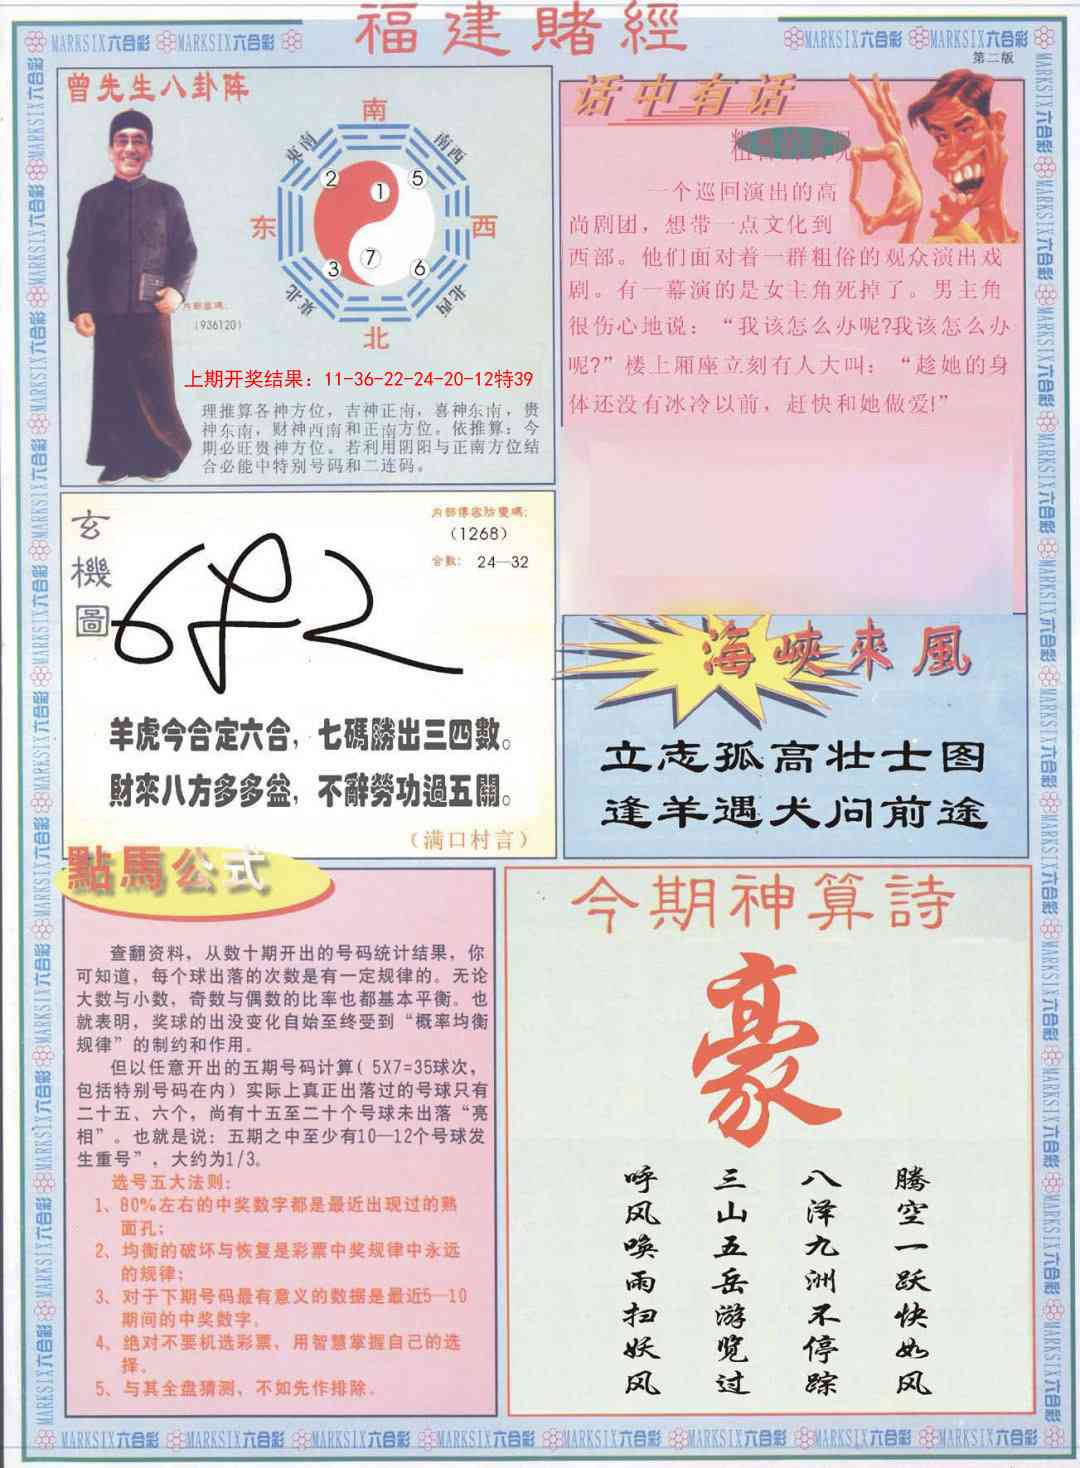 福建賭經
MARKSIX六合彩 MARKSIX六合彩
MARKSIX六合彩 MARKSIX六合彩
第二版
曾先生八卦阵
南
東南
南西
2
1
5
东
西
7
3
6
東北
北西
北
内部密碼:
(936120)
上期开奖结果：11-36-22-24-20-12特39
理推算各神方位，吉神正南，喜神东南，贵
神东南，财神西南和正南方位。依推算：今
期必旺贵神方位。若利用阴阳与正南方位结
合必能中特别号码和二连码。
话中有话
一个巡回演出的高
尚剧团，想带一点文化到
西部。他们面对着一群粗俗的观众演出戏
剧。有一幕演的是女主角死掉了。男主角
很伤心地说：“我该怎么办呢?我该怎么办
呢?”楼上厢座立刻有人大叫：“趁她的身
体还没有冰冷以前，赶快和她做爱!”
玄機圖
内部傳密防變碼:
(1268)
合數: 24—32
682
羊虎今合定六合，七碼勝出三四數。
財來八方多多益，不辭勞功過五關。
(满口村言)
海峽來風
立志孤高壮士图
逢羊遇犬问前途
點馬公式
查翻资料，从数十期开出的号码统计结果，你
可知道，每个球出落的次数是有一定规律的。无论
大数与小数，奇数与偶数的比率也都基本平衡。也
就表明，奖球的出没变化自始至终受到“概率均衡
规律”的制约和作用。
但以任意开出的五期号码计算( 5X7=35球次，
包括特别号码在内）实际上真正出落过的号球只有
二十五、六个，尚有十五至二十个号球未出落“亮
相”。也就是说：五期之中至少有10—12个号球发
生重号”，大约为1/3。
选号五大法则:
1、80%左右的中奖数字都是最近出现过的熟
面孔;
2、均衡的破坏与恢复是彩票中奖规律中永远
的规律;
3、对于下期号码最有意义的数据是最近5—10
期间的中奖数字。
4、绝对不要机选彩票，用智慧掌握自己的选
择。
5、与其全盘猜测，不如先作排除。
今期神算詩
豪
呼风唤雨扫妖风
三山五岳游览过
八泽九洲不停踪
腾空一跃快如风
MARKSIX六合彩 MARKSIX六合彩 MARKSIX六合彩 MARKSIX六合彩 MARKSIX六合彩 MARKSIX六合彩 MARKSIX六合彩 MARKSIX六合彩